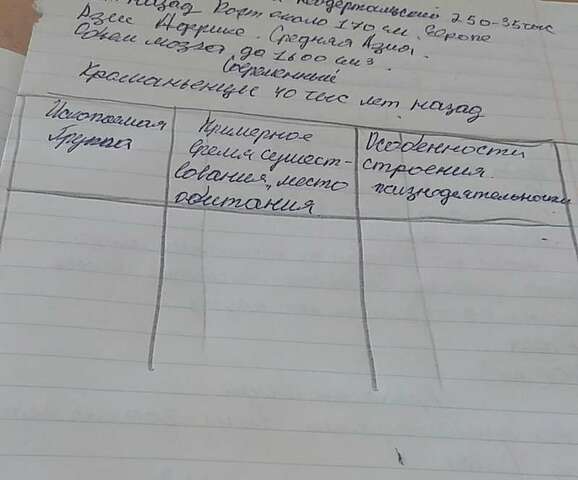 неодертальский 250-35тыс
назад Рост около 170 см. Европе
Азии Африке. Средняя Азия.
Объем мозга до 1600 см³.
Современный
Кроманьенцы 40 тыс лет назад
Ископаемая
группа
Примерное
время сущест-
вования, место
обитания
Особенности
строения.
жизнедеятельности